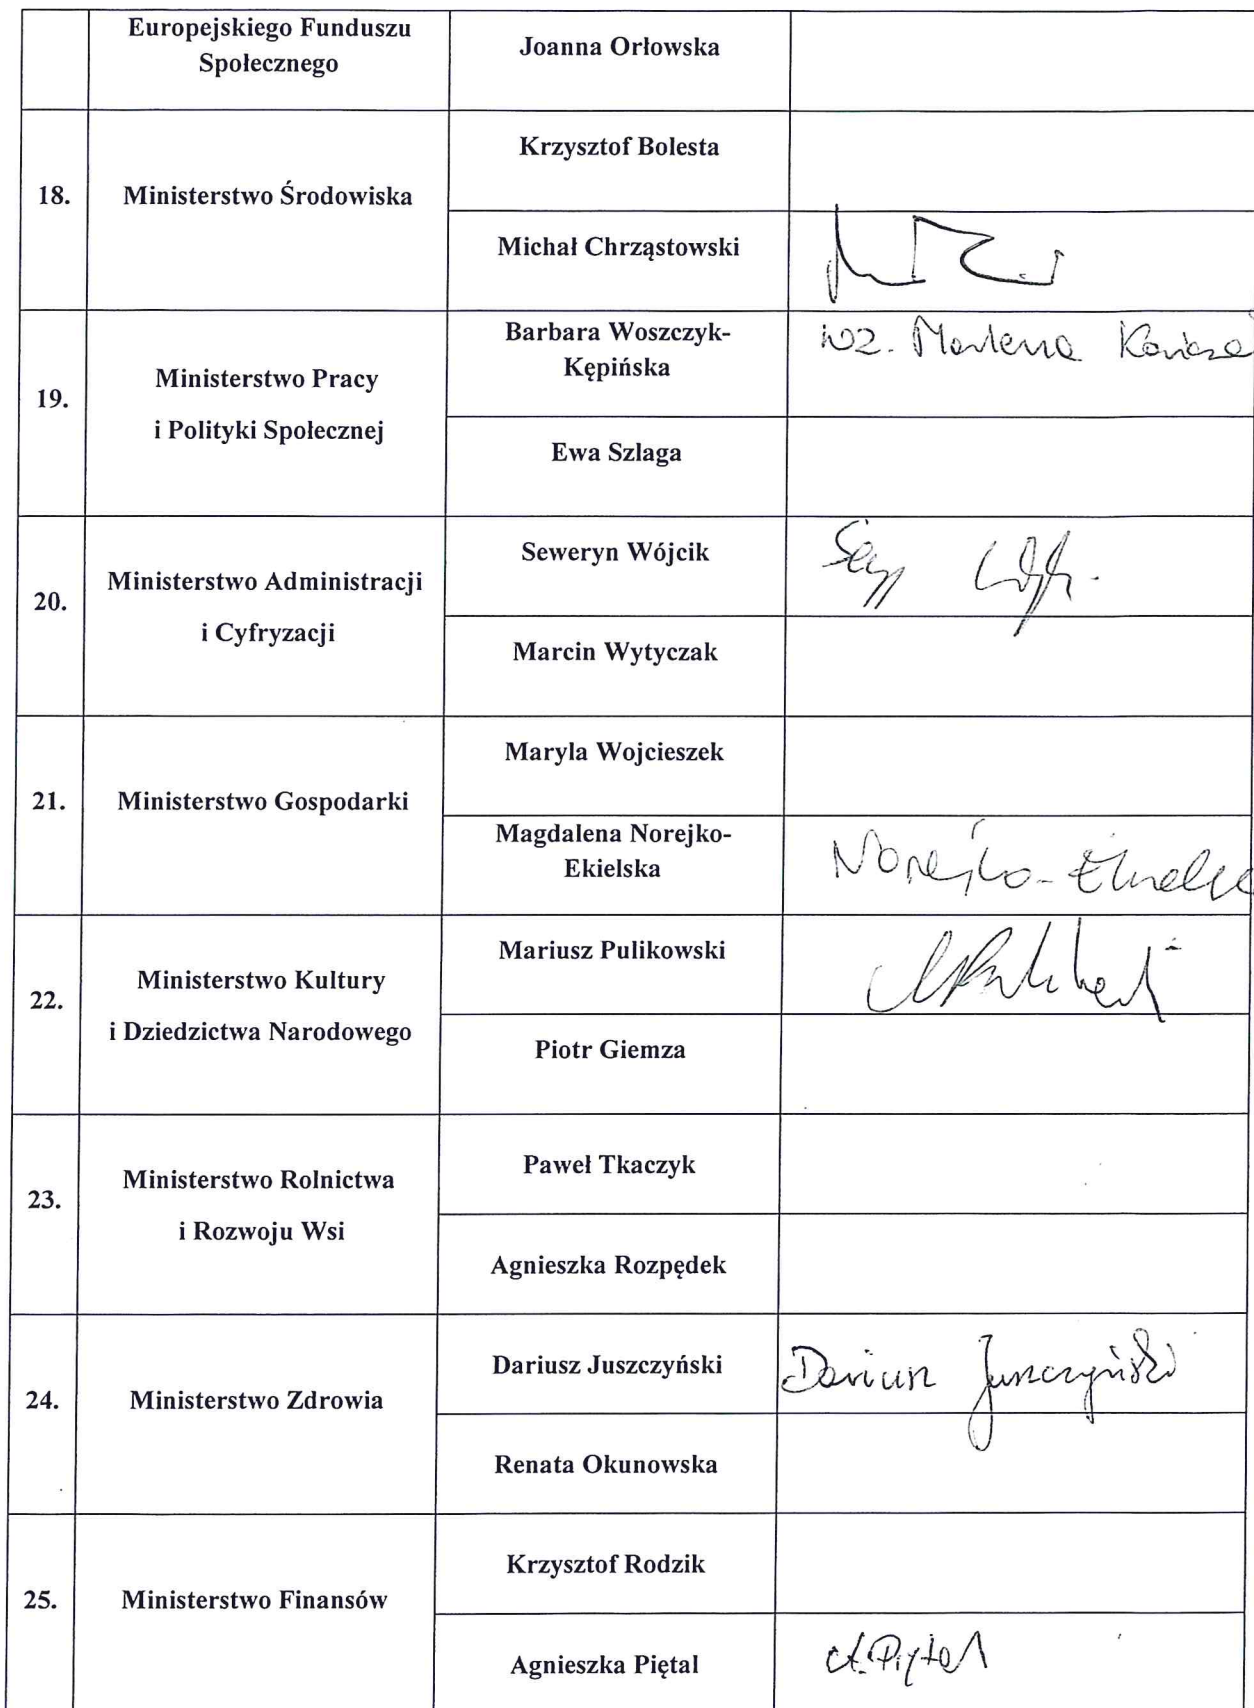 Europejskiego Funduszu
Społecznego
Joanna Orłowska
18.
Ministerstwo Środowiska
Krzysztof Bolesta
Michał Chrząstowski
19.
Ministerstwo Pracy
i Polityki Społecznej
Barbara Woszczyk-
Kępińska
wz. Marlena
Ewa Szlaga
20.
Ministerstwo Administracji
i Cyfryzacji
Seweryn Wójcik
Marcin Wytyczak
21.
Ministerstwo Gospodarki
Maryla Wojcieszek
Magdalena Norejko-
Ekielska
Norejko-
22.
Ministerstwo Kultury
i Dziedzictwa Narodowego
Mariusz Pulikowski
Piotr Giemza
23.
Ministerstwo Rolnictwa
i Rozwoju Wsi
Paweł Tkaczyk
Agnieszka Rozpędek
24.
Ministerstwo Zdrowia
Dariusz Juszczyński
Dariusz Juszczyński
Renata Okunowska
25.
Ministerstwo Finansów
Krzysztof Rodzik
Agnieszka Piętal
A. Piętal